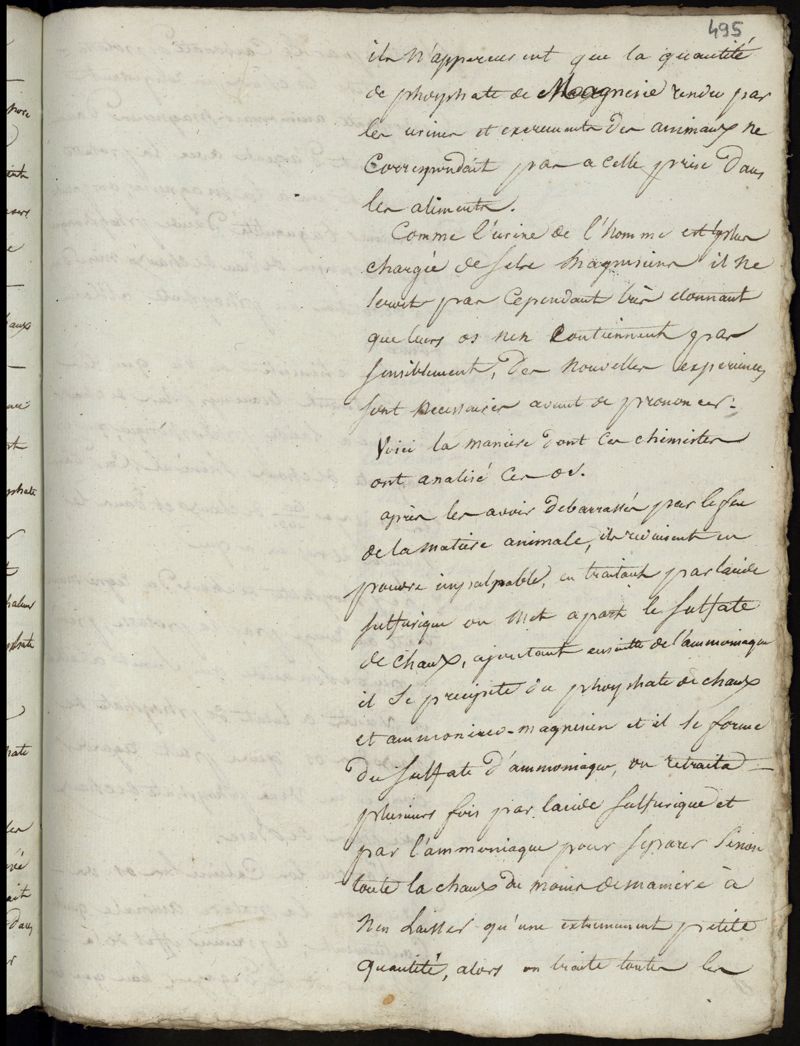 495
ils n'apperceurent que la quantité
de phosphate de Magnesie rendu par
les urines et excrements des animaux ne
Correspondait pas a celle prise dans
les aliments.
Comme l'urine de l'homme est plus
chargée de sels magnesiens il ne
serait pas Cependant très etonnant
que leurs os nen Continnent pas
sensiblement, des nouvelles experiences
sont necessaires avant de prononcer.
Voici la manière dont ces chimistes
ont analisé ces os.
après les avoir debarrassés par le feu
de la matiere animale, ils reduisent en
poudre impalpable, en traitant par lacide
sulfurique on met apart le sulfate
de chaux, ajoutant ensuitte de l'ammoniaque
il se precipite du phosphate de chaux
et ammoniaco-magnesien et il se forme
du sulfate d'ammoniaque, on retraita
plusieurs fois par lacide sulfurique et
par l'ammoniaque pour separer sinon
toute la chaux du moins de maniere à
nen laisser qu'une extremement petite
quantité, alors on traite toutes les